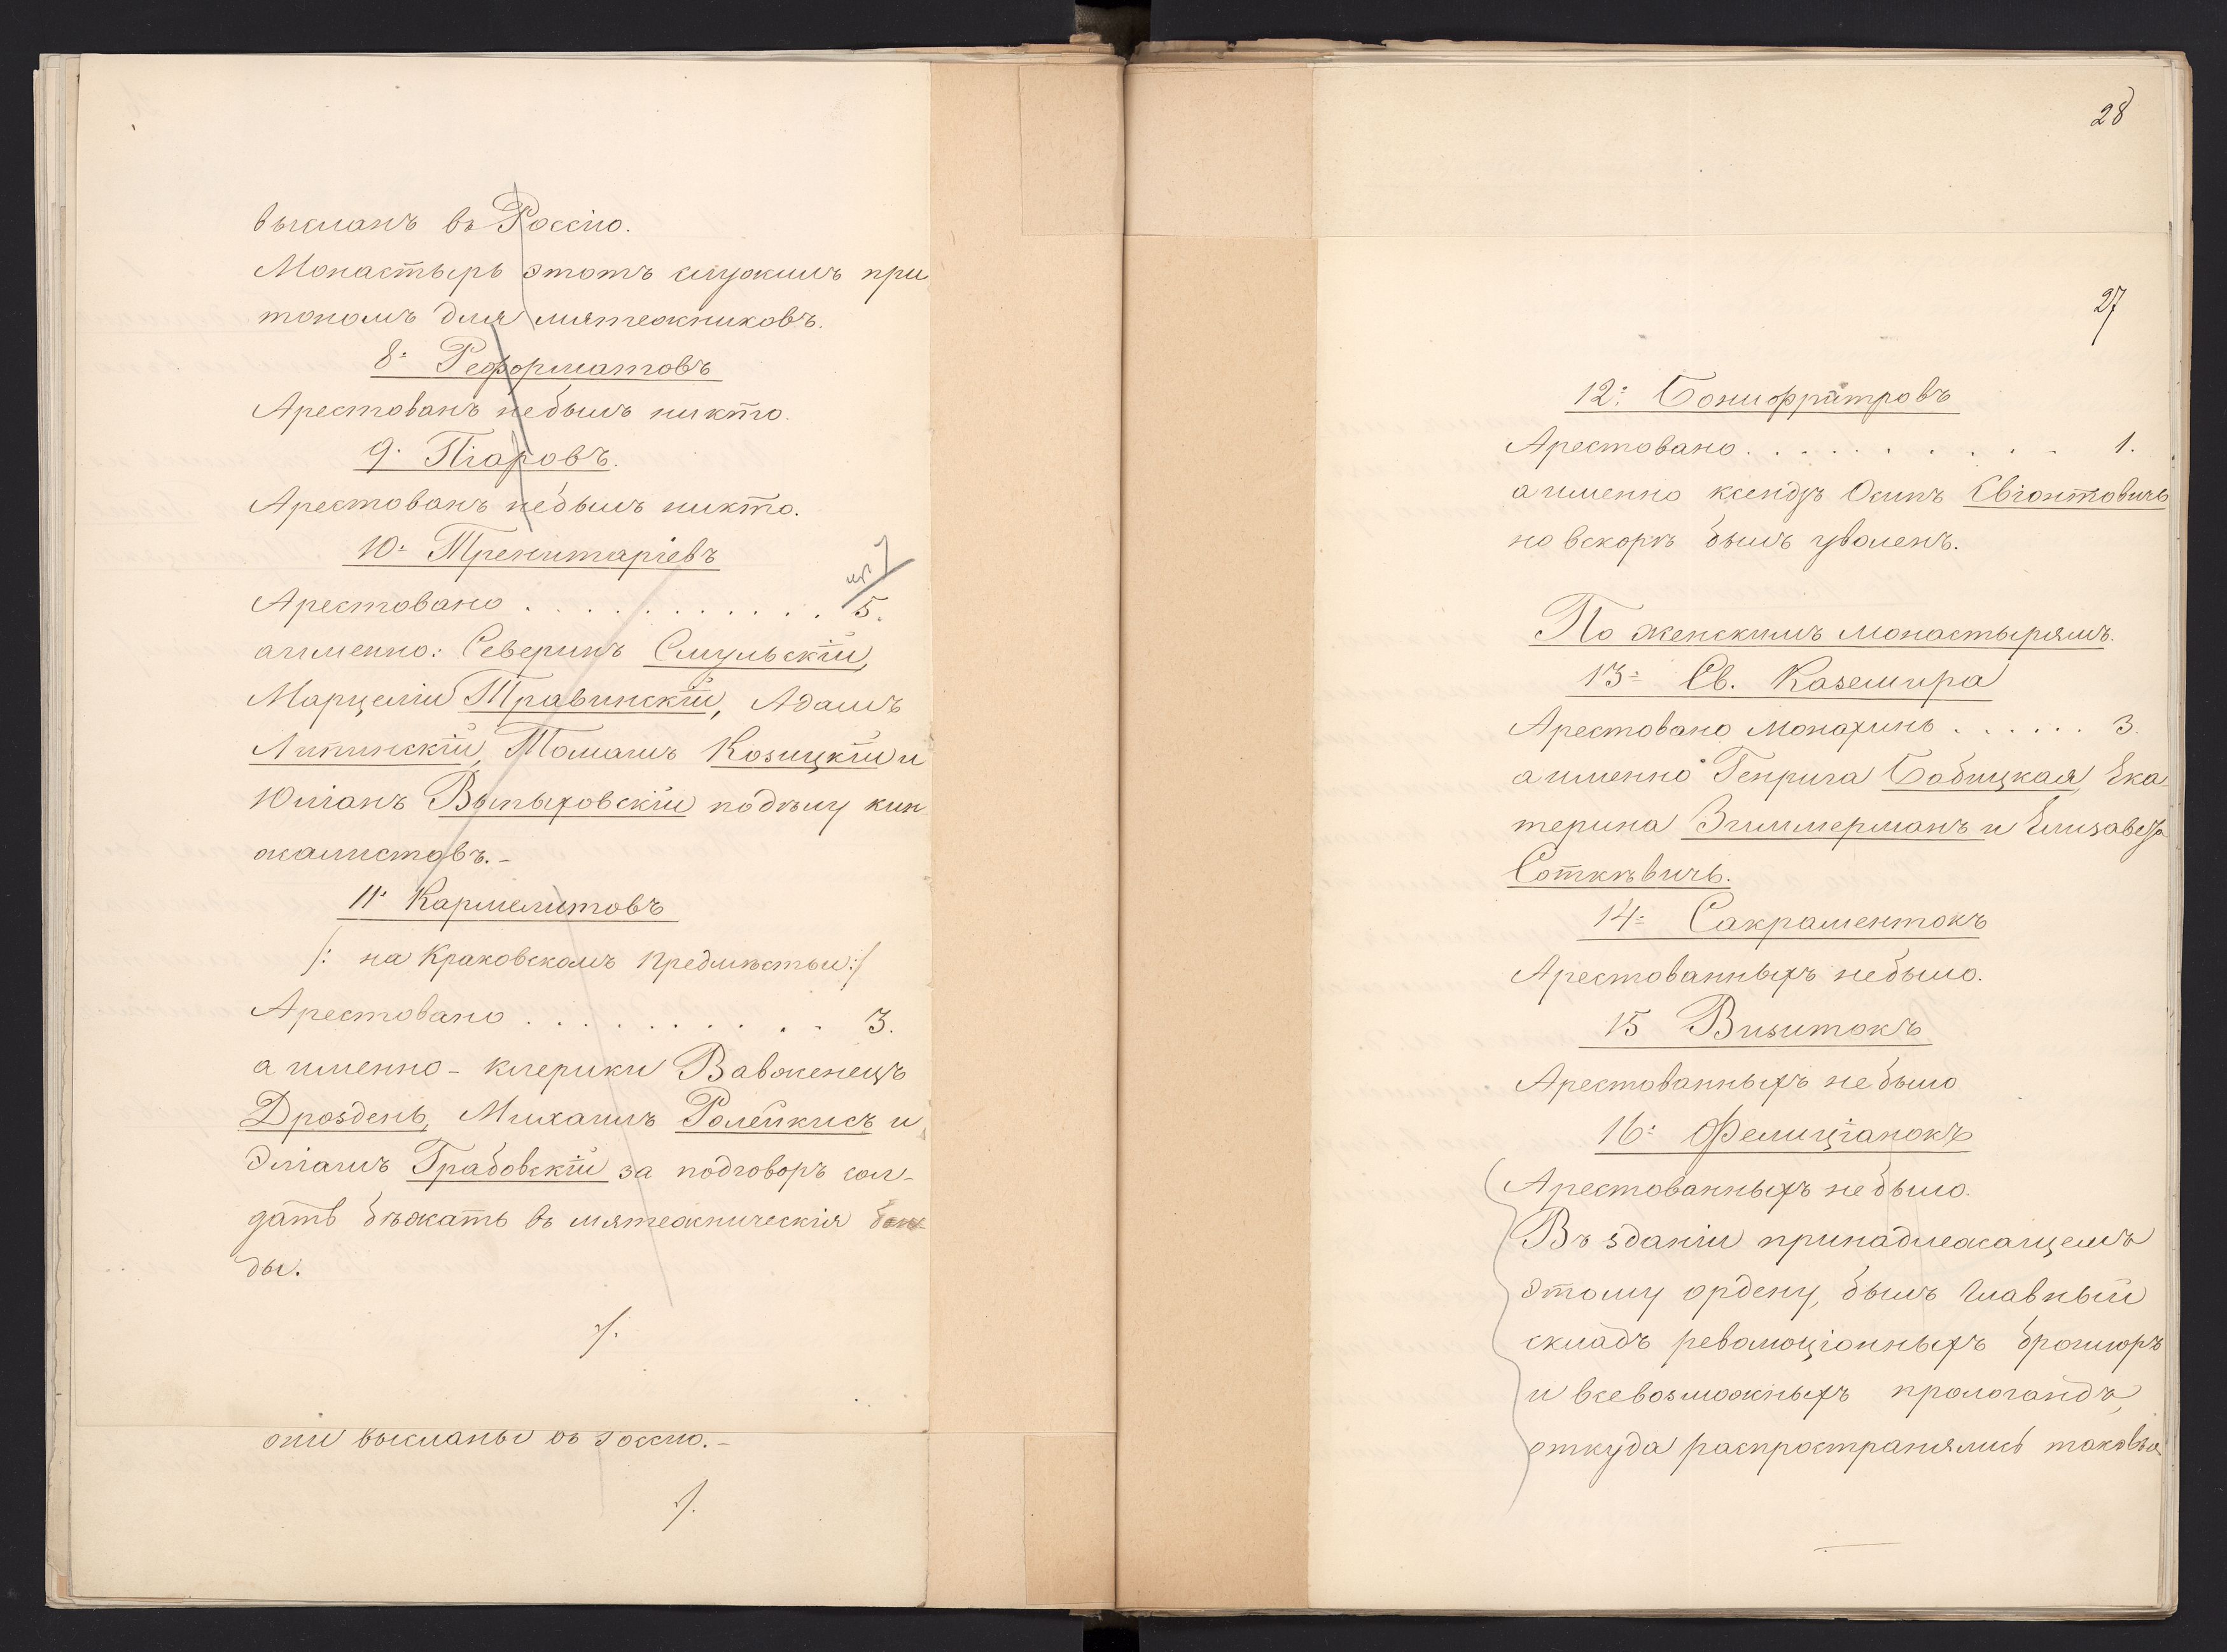 высланъ въ Россію.
Монастырь этотъ служилъ при
тономъ для мятежниковъ.
8: Реформатовъ
Арестованъ небылъ никто.
9. Піаровъ.
Арестованъ небылъ никто.
10: Тренитаріевъ
Арестовано . . . . . . . . . . . 5.
аименно: Северинъ Смульскій,
Марцелій Травинскій, Адамъ
Липинскій, Томашъ Козицкій и
Юліанъ Выпыховскій подѣлу кин
жалистовъ.-
11. Кармелитовъ
/: на Краковскомъ предмѣстьи:/
Арестовано . . . . . . . . . . . 3.
а именно - клерики Вавженецъ
Дроздень, Михаилъ Ролейкисъ и
Эліашъ Грабовскій за подговоръ сол-
датъ бѣжать въ мятежническія бан-
ды.
./.
они высланы въ Россію.-
./.
28
27
12: Бонифрâтровъ
Арестовано . . . . . . . . . . 1.
аименно ксендзъ Осипъ Свіонтовичъ
но вскорѣ былъ уволенъ.
По женскимъ монастырямъ.
13: Св. Каземира
Арестовано Монахинь . . . . . . 3.
аименно Генрига Бабицкая, Ека-
терина Зиммерманъ и Елизавета
Соткѣвичъ.
14: Сакраментокъ
Арестованныхъ небыло.
15 Визитокъ
Арестованныхъ не было
16: Фелиціанокъ
Арестованныхъ не было.
Въ зданіи принадлежащемъ
этому ордену, былъ Главный
складъ революціонныхъ брошюръ
и всевозможныхъ пропогандъ,
откуда распространялись таковыя